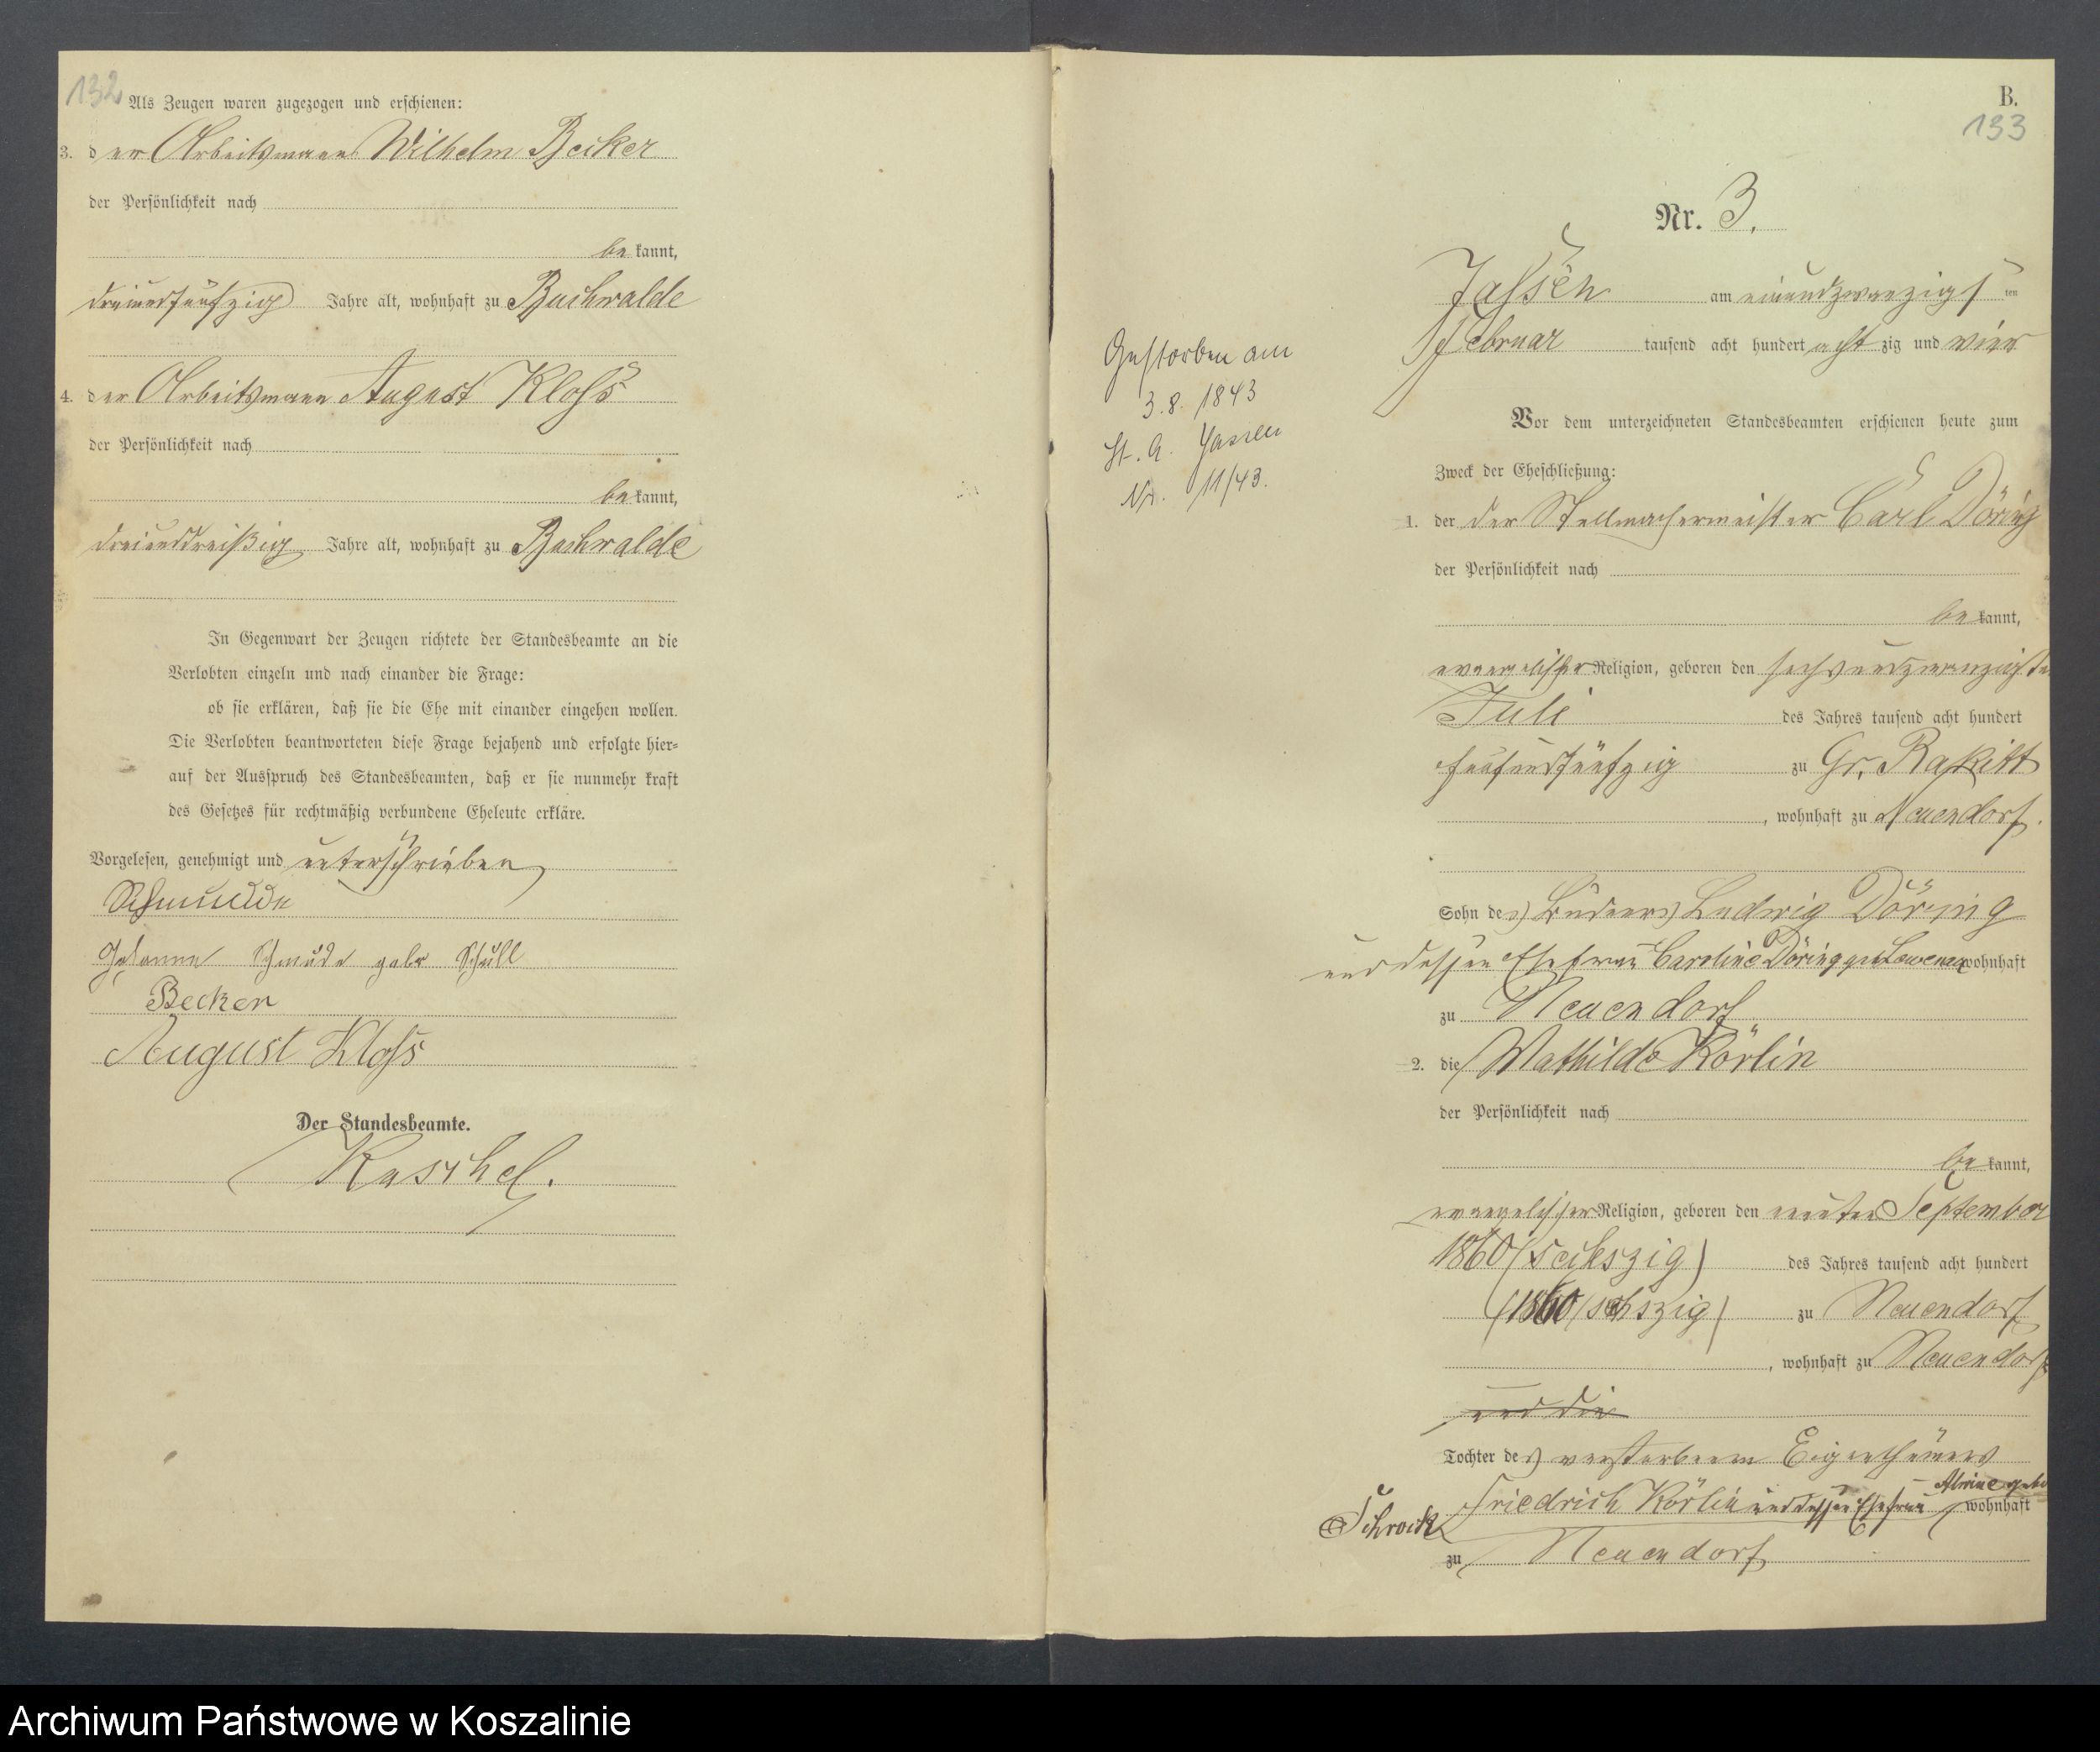 132
Als Zeugen waren zugezogen und erschienen:
3. der Arbeitsmann Wilhelm Becker
der Persönlichkeit nach
bekannt,
dreiundfünfzig Jahre alt, wohnhaft zu Buchwalde
4. der Arbeitsmann August Kloss
der Persönlichkeit nach
bekannt,
dreiunddreißig Jahre alt, wohnhaft zu Buchwalde
In Gegenwart der Zeugen richtete der Standesbeamte an die
Verlobten einzeln und nach einander die Frage:
ob sie erklären, daß sie die Ehe mit einander eingehen wollen.
Die Verlobten beantworteten diese Frage bejahend und erfolgte hier-
auf der Ausspruch des Standesbeamten, daß er sie nunmehr kraft
des Gesetzes für rechtmäßig verbundene Eheleute erkläre.
Vorgelesen, genehmigt und unterschrieben
Schmude
Johanne Schmude gebr Schüll
Becker
August Kloss
Der Standesbeamte.
Kuschel.
B.
133
Nr. 3.
Jassen am einundzwanzigsten
Februar tausend acht hundert achtzig und vier
Gestorben am
3.8. 1943
St. A. Jassen
Nr. 11/43.
Vor dem unterzeichneten Standesbeamten erschienen heute zum
Zweck der Eheschließung:
1. der der Stellmachermeister Carl Döring
der Persönlichkeit nach
bekannt,
evangelischer Religion, geboren den sechsundzwanzigsten
Juli des Jahres tausend acht hundert
fünfundfünfzig zu Gr. Rakitt
, wohnhaft zu Neuendorf.
Sohn des Büdners Ludwig Döring
und dessen Ehefrau Caroline Döring geb wohnhaft
zu Neuendorf
2. die Mathilde Körlin
der Persönlichkeit nach
bekannt,
evangelischer Religion, geboren den neunten September
1860 (sechszig) des Jahres tausend acht hundert
(1860 (sechszig) zu Neuendorf
, wohnhaft zu Neuendorf
und die
Tochter des verstorbenen Eigenthümers
Friedrich Körlin und dessen Ehefrau Alwine geb wohnhaft
Schrock
zu Neuendorf
Archiwum Państwowe w Koszalinie